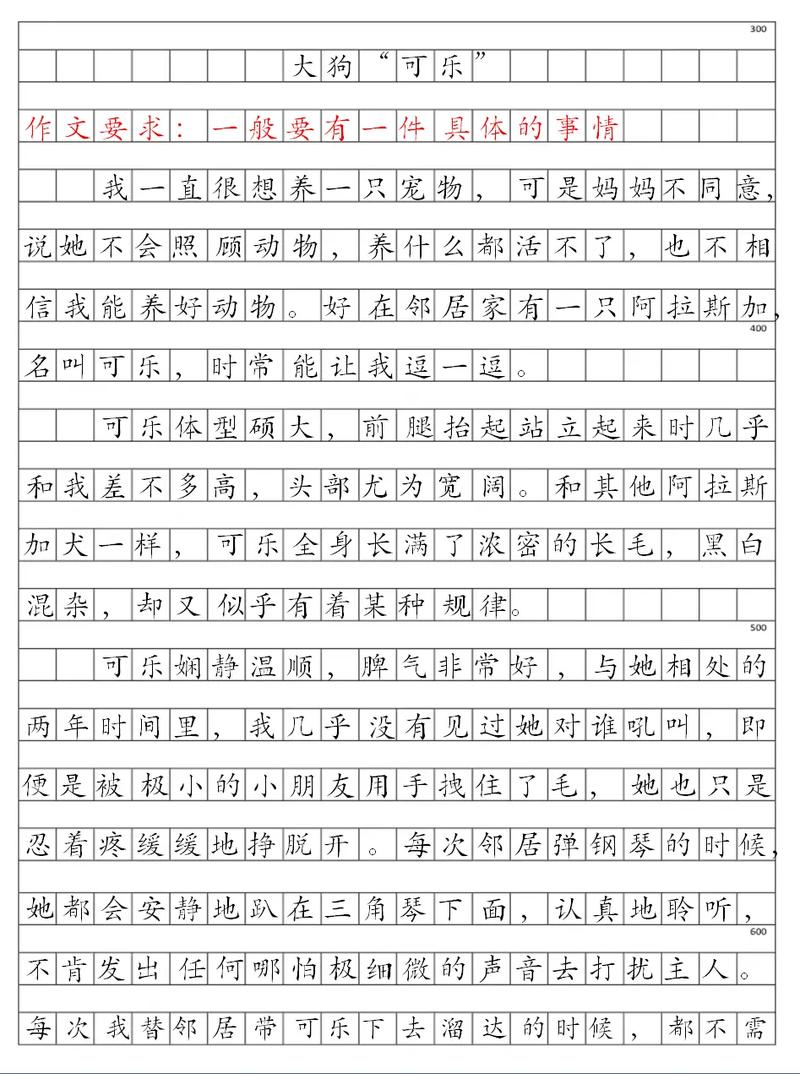 300
大狗“可乐”
作文要求：一般要有一件具体的事情
我一直很想养一只宠物，可是妈妈不同意，
说她不会照顾动物，养什么都活不了，也不相
信我能养好动物。好在邻居家有一只阿拉斯加，
400
名叫可乐，时常能让我逗一逗。
可乐体型硕大，前腿抬起站立起来时几乎
和我差不多高，头部尤为宽阔。和其他阿拉斯
加犬一样，可乐全身长满了浓密的长毛，黑白
混杂，却又似乎有着某种规律。
500
可乐娴静温顺，脾气非常好，与她相处的
两年时间里，我几乎没有见过她对谁吼叫，即
便是被极小的小朋友用手拽住了毛，她也只是
忍着疼缓缓地挣脱开。每次邻居弹钢琴的时候，
她都会安静地趴在三角琴下面，认真地聆听，
600
不肯发出任何哪怕极细微的声音去打扰主人。
每次我替邻居带可乐下去溜达的时候，都不需